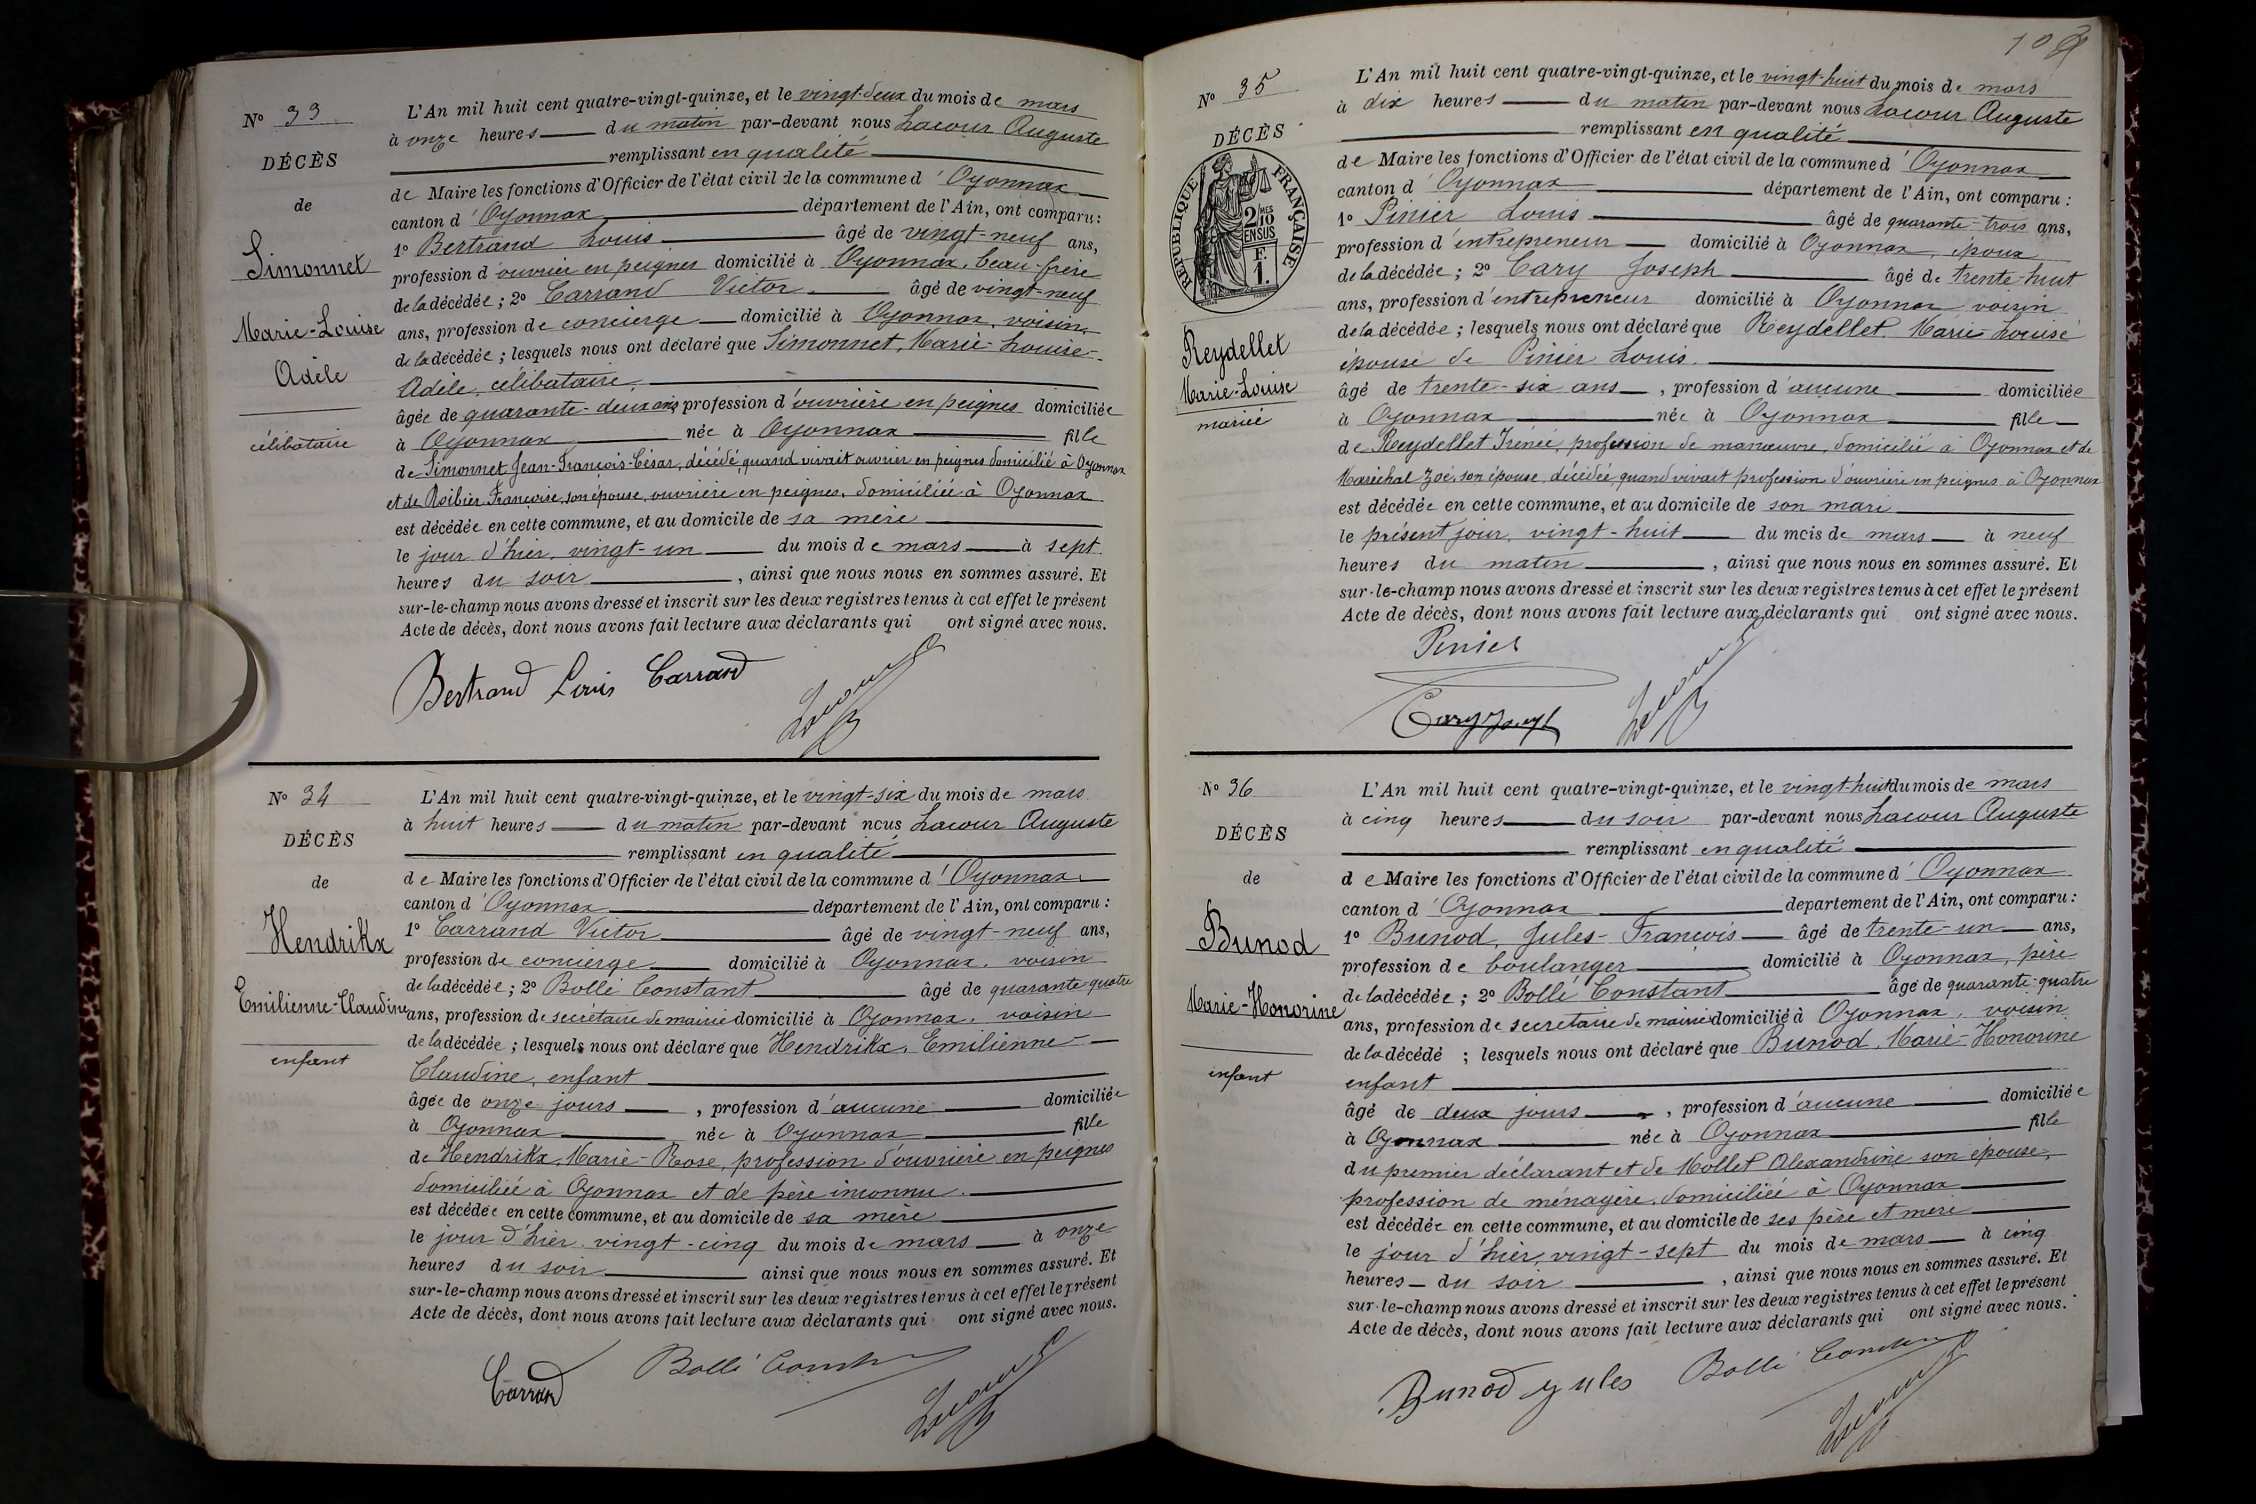 Nº 33
DÉCÈS
de
Simonnet
Marie-Louise
Adèle
célibataire
L'An mil huit cent quatre-vingt-quinze, et le vingt-deux du mois de mars
à onze heures du matin par-devant nous Lacour Auguste
remplissant en qualité
de Maire les fonctions d'Officier de l'état civil de la commune d'Oyonnax
canton d'Oyonnax département de l'Ain, ont comparu :
1º Bertrand Louis âgé de vingt-neuf ans,
profession d'ouvrier en peignes domicilié à Oyonnax, beau-frère
de la décédée ; 2º Carrand Victor âgé de vingt-neuf
ans, profession de concierge domicilié à Oyonnax, voisin
de la décédée ; lesquels nous ont déclaré que Simonnet, Marie-Louise-
Adèle, célibataire,
âgée de quarante-deux ans profession d'ouvrière en peignes domiciliée
à Oyonnax née à Oyonnax fille
de Simonnet Jean-François-César, décédé, quand vivait ouvrier en peignes domicilié à Oyonnax
et de Roibier Françoise, son épouse, ouvrière en peignes, domiciliée à Oyonnax
est décédée en cette commune, et au domicile de sa mère
le jour d'hier, vingt-un du mois de mars à sept
heures du soir, ainsi que nous nous en sommes assuré. Et
sur-le-champ nous avons dressé et inscrit sur les deux registres tenus à cet effet le présent
Acte de décès, dont nous avons fait lecture aux déclarants qui ont signé avec nous.
Bertrand Louis Carrand
Lacour
Nº 34
DÉCÈS
de
Hendrikx
Emilienne-Claudine
enfant
L'An mil huit cent quatre-vingt-quinze, et le vingt-six du mois de mars
à huit heures du matin par-devant nous Lacour Auguste
remplissant en qualité
de Maire les fonctions d'Officier de l'état civil de la commune d'Oyonnax
canton d'Oyonnax département de l'Ain, ont comparu :
1º Carrand Victor âgé de vingt-neuf ans,
profession de concierge domicilié à Oyonnax, voisin
de la décédée ; 2º Bollé Constant âgé de quarante-quatre
ans, profession de secrétaire de mairie domicilié à Oyonnax, voisin
de la décédée ; lesquels nous ont déclaré que Hendrikx, Emilienne-
Claudine, enfant
âgée de onze jours, profession d'aucune domiciliée
à Oyonnax née à Oyonnax fille
de Hendrikx, Marie-Rose, profession d'ouvrière en peignes
domiciliée à Oyonnax et de père inconnu.
est décédée en cette commune, et au domicile de sa mère
le jour d'hier vingt-cinq du mois de mars à onze
heures du soir ainsi que nous nous en sommes assuré. Et
sur-le-champ nous avons dressé et inscrit sur les deux registres tenus à cet effet le présent
Acte de décès, dont nous avons fait lecture aux déclarants qui ont signé avec nous.
Carrand Bollé Constant
Lacour
Nº 35
DÉCÈS
RÉPUBLIQUE FRANÇAISE
2/10 MES
EN SUS
F.
1.
Reydellet
Marie-Louise
mariée
L'An mil huit cent quatre-vingt-quinze, et le vingt-huit du mois de mars
à dix heures du matin par-devant nous Lacour Auguste
remplissant en qualité
de Maire les fonctions d'Officier de l'état civil de la commune d'Oyonnax
canton d'Oyonnax département de l'Ain, ont comparu :
1º Pinier Louis âgé de quarante-trois ans,
profession d'entrepreneur domicilié à Oyonnax, époux
de la décédée ; 2º Cary Joseph âgé de trente-huit
ans, profession d'entrepreneur domicilié à Oyonnax voisin
de la décédée ; lesquels nous ont déclaré que Reydellet Marie-Louise
épouse de Pinier Louis.
âgé de trente-six ans, profession d'aucune domiciliée
à Oyonnax née à Oyonnax fille
de Reydellet Irénée, profession de manœuvre, domicilié à Oyonnax et de
Maréchal Zoé, son épouse, décédée, quand vivait profession d'ouvrière en peignes à Oyonnax
est décédée en cette commune, et au domicile de son mari
le présent jour, vingt-huit du mois de mars à neuf
heures du matin, ainsi que nous nous en sommes assuré. Et
sur-le-champ nous avons dressé et inscrit sur les deux registres tenus à cet effet le présent
Acte de décès, dont nous avons fait lecture aux déclarants qui ont signé avec nous.
Pinier
Cary Joseph Lacour
Nº 36
DÉCÈS
de
Bunod
Marie-Honorine
enfant
L'An mil huit cent quatre-vingt-quinze, et le vingt-huit du mois de mars
à cinq heures du soir par-devant nous Lacour Auguste
remplissant en qualité
de Maire les fonctions d'Officier de l'état civil de la commune d'Oyonnax
canton d'Oyonnax département de l'Ain, ont comparu :
1º Bunod, Jules-François âgé de trente-un ans,
profession de boulanger domicilié à Oyonnax, père
de la décédée ; 2º Bollé Constant âgé de quarante-quatre
ans, profession de secrétaire de mairie domicilié à Oyonnax, voisin
de la décédé ; lesquels nous ont déclaré que Bunod, Marie-Honorine
enfant
âgé de deux jours, profession d'aucune domiciliée
à Oyonnax née à Oyonnax fille
du premier déclarant et de Mollet Alexandrine son épouse,
profession de ménagère, domiciliée à Oyonnax
est décédée en cette commune, et au domicile de ses père et mère
le jour d'hier, vingt-sept du mois de mars à cinq
heures du soir, ainsi que nous nous en sommes assuré. Et
sur-le-champ nous avons dressé et inscrit sur les deux registres tenus à cet effet le présent
Acte de décès, dont nous avons fait lecture aux déclarants qui ont signé avec nous.
Bunod Jules Bollé Constant
Lacour